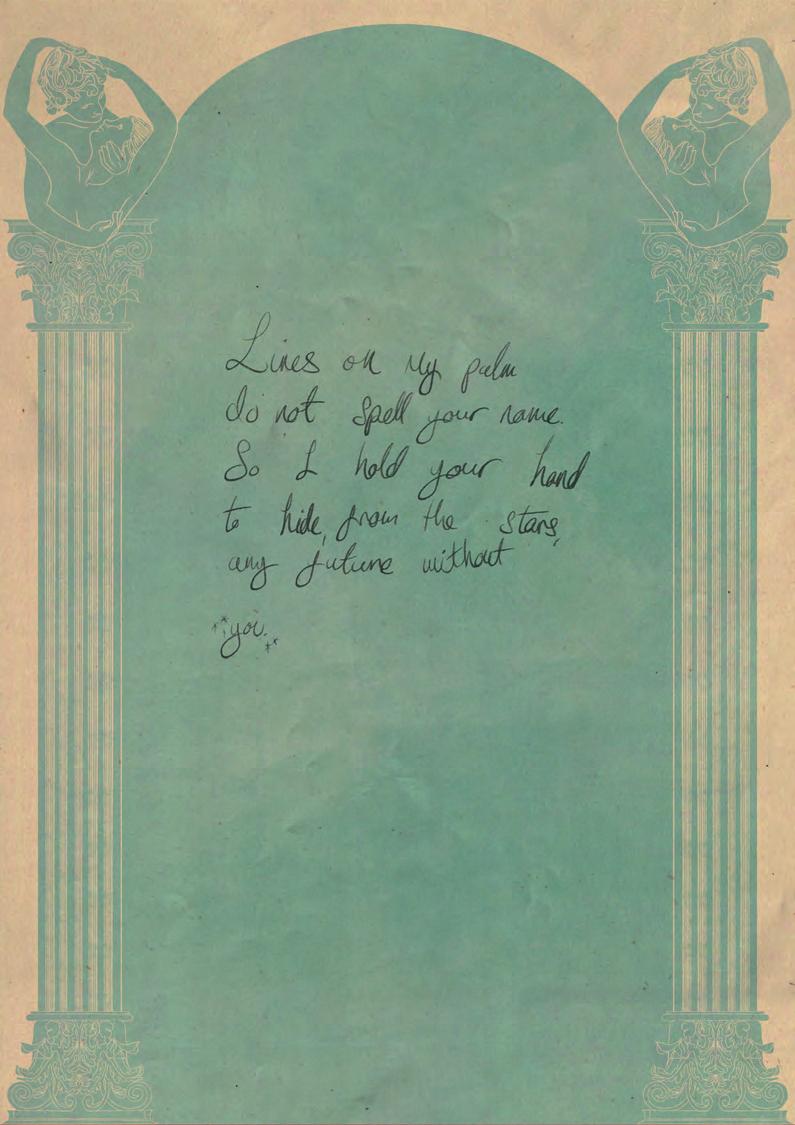 Lines on my palm
do not spell your name.
So I hold your hand
to hide, from the stars,
any future without
you.